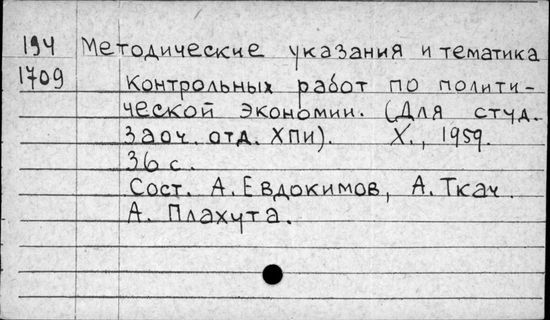 194 Методические указания и тематика
1709 контрольных работ по полити-
ческой экономии. (Для студ.
заоч. отд. ХПИ). Х., 1959.
36 с.
Сост. А. Евдокимов, А. Ткач.
А. Плахута.